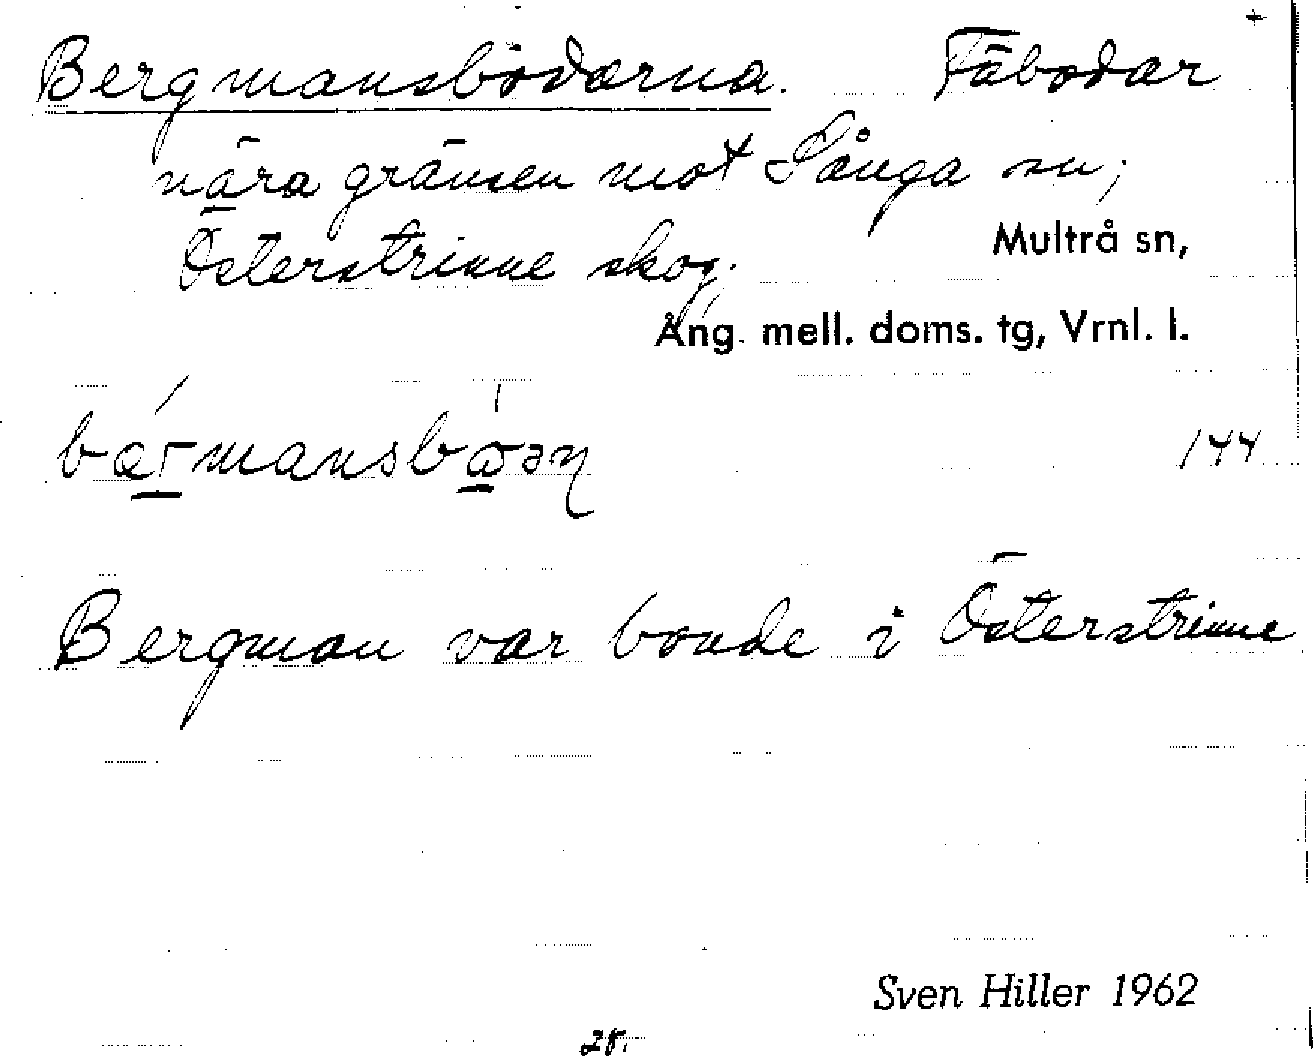 Bergmansbodarna. Fäbodar
nära gränsen mot Sånga sn;
Österstrinne skog.
Multrå sn,
Ång. mell. doms. tg, Vrnl. l.
144
Bergman var bonde i Österstrinne
Sven Hiller 1962